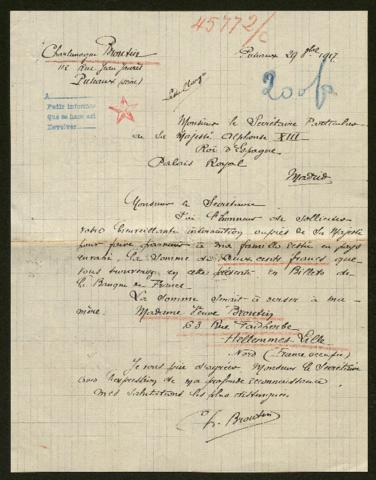 45772/2
Charlemagne Broutin
112 Rue Jean Jaurès
Puteaux (Seine)
Puteaux 29 9bre 1917
A
Pedir informe
Que se hace así
Devolver
200f
Monsieur le Secrétaire Particulier
de Sa Majesté Alphonse XIII
Roi d'Espagne
Palais Royal
Madrid
Monsieur le Secrétaire
J'ai l'honneur de solliciter
votre bienveillante intervention auprès de Sa Majesté
pour faire parvenir à ma famille restée en pays
envahi, la somme de Deux cents francs que
vous trouverez en cette présente en Billets de
la Banque de France.
La somme serait à verser à ma
mère. Madame Veuve Broutin
63 Rue Faidherbe
Hellemmes Lille
Nord (France occupée)
Je vous prie d'agréer, Monsieur le Secrétaire
avec l'expression de ma profonde reconnaissance
mes salutations les plus distinguées
Ch. Broutin